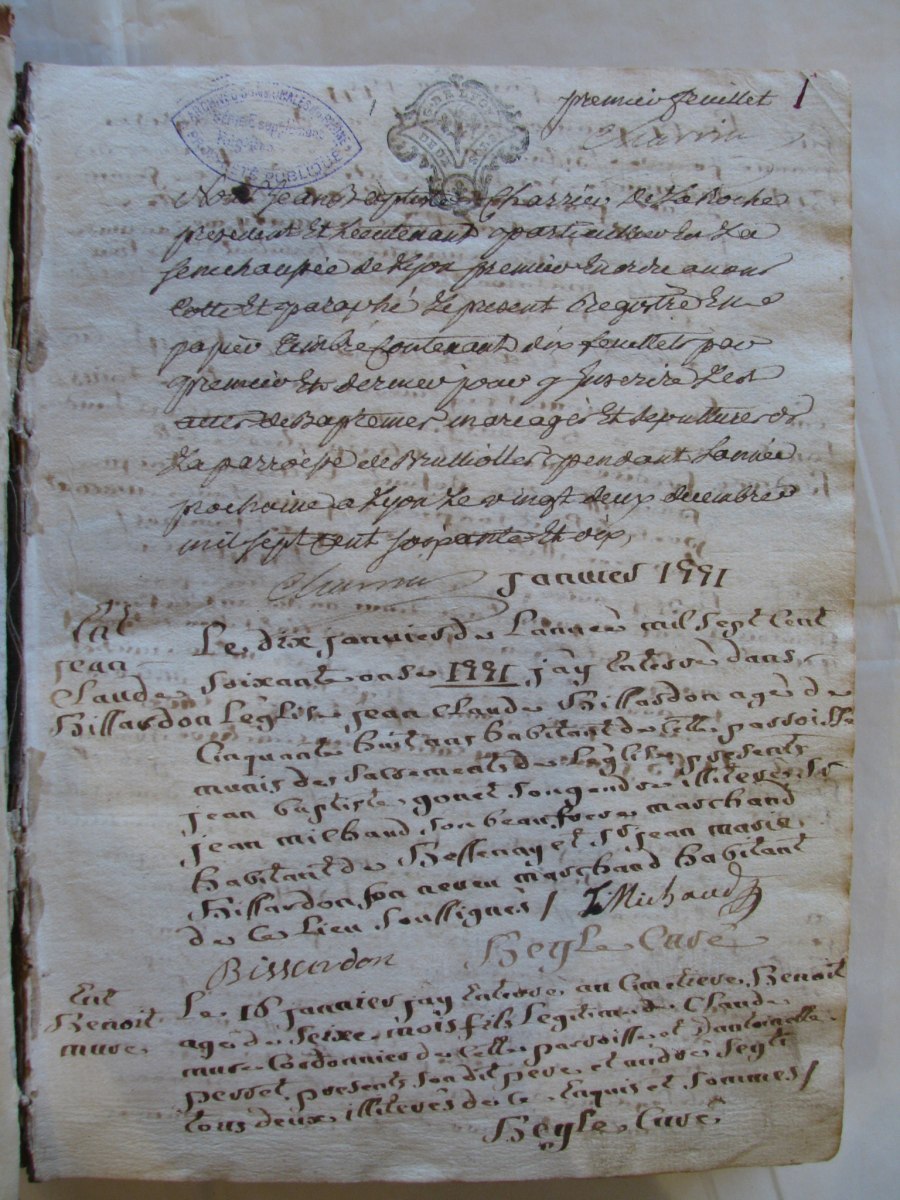 premier feuillet
1
Charrier
ARCHIVES DÉPARTEMENTALES DU RHONE
PROPRIÉTÉ PUBLIQUE
GN. DE LYON
Nous Jean Baptiste Charrier De La Roche
president Et Lieutenant particullier En La
senechaussée de Lyon premier En ordre avons
Cotté Et paraphé Le present Registre En
papier timbré Contenant dix feuillets par
premier Et dernier pour y Inscrire Les
actes de Baptemes mariages Et sepultures de
La parroisse de Brulliolles pendant L'année
prochaine a Lyon Le vingt deux decembre
mil sept cent soixante Et dix,
Charrier
Janvier 1771
Ent
jean
Claude
Bissardon
Le dix janvier de L'année mil sept cent
soixante onse 1771 j'ay enterré dans
l'église jean Claude Bissardon agé de
cinquante huit ans habitant de cette parroisse
munis des sacrements de l'église presents
jean baptiste gonet son gendre illiteré sr
jean michaud son beaufrere marchand
habitant de Bessenay et sr jean marie
Bissardon son neveu marchand habitant
de ce lieu soussignés / J Michaud
Bissardon Begle Curé
Ent
Benoit
mure
Le 16 janvier j'ay enterré au cimetiere Benoit
agé de seize mois fils legitime de Claude
mure Cordonnier de cette parroisse et d'antoinette
perret presents son dit pere et andré
tous deux illiterés de ce enquis et sommés /
Begle Curé